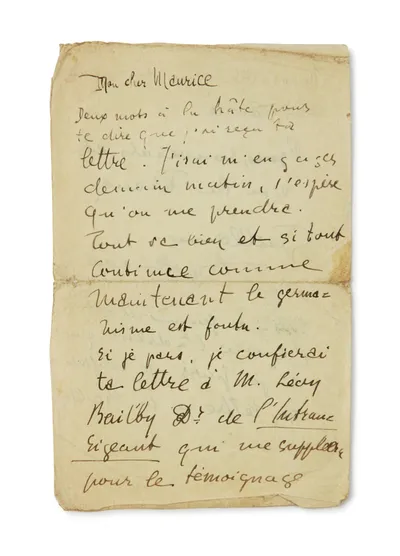 Mon cher Maurice
Deux mots à la hâte pour
te dire que j'ai reçu ta
lettre. J'irai m'engager
demain matin, j'espère
qu'on me prendra.
Tout va bien et si tout
continue comme
maintenant le germa=
nisme est foutu.
Si je pars, je confierai
ta lettre à M. Léon
Bailby Dr. de l'Intran
sigeant qui me suppléera
pour le témoignage